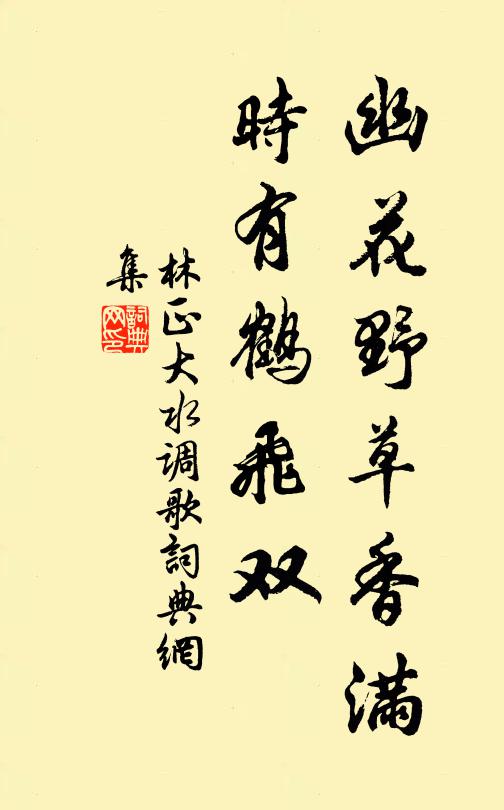 幽花野草香满
時有鶴飛双
林正大水调歌詞典網
集
詞典网印